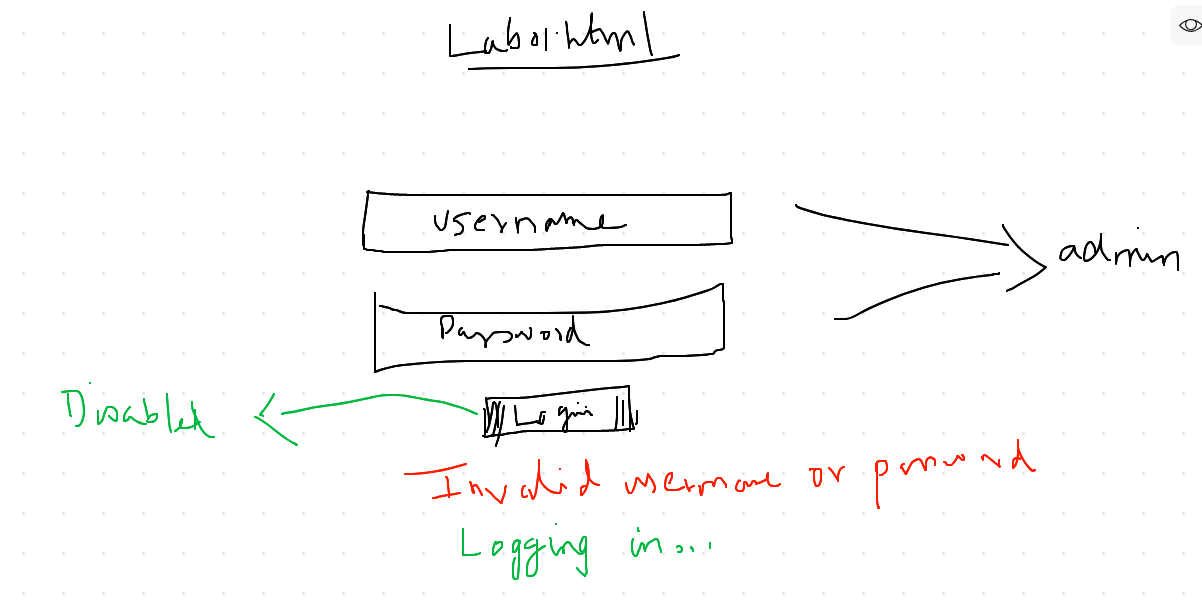 Lab01.html
username
admin
Password
Disabled
Login
Invalid username or password
Logging in...